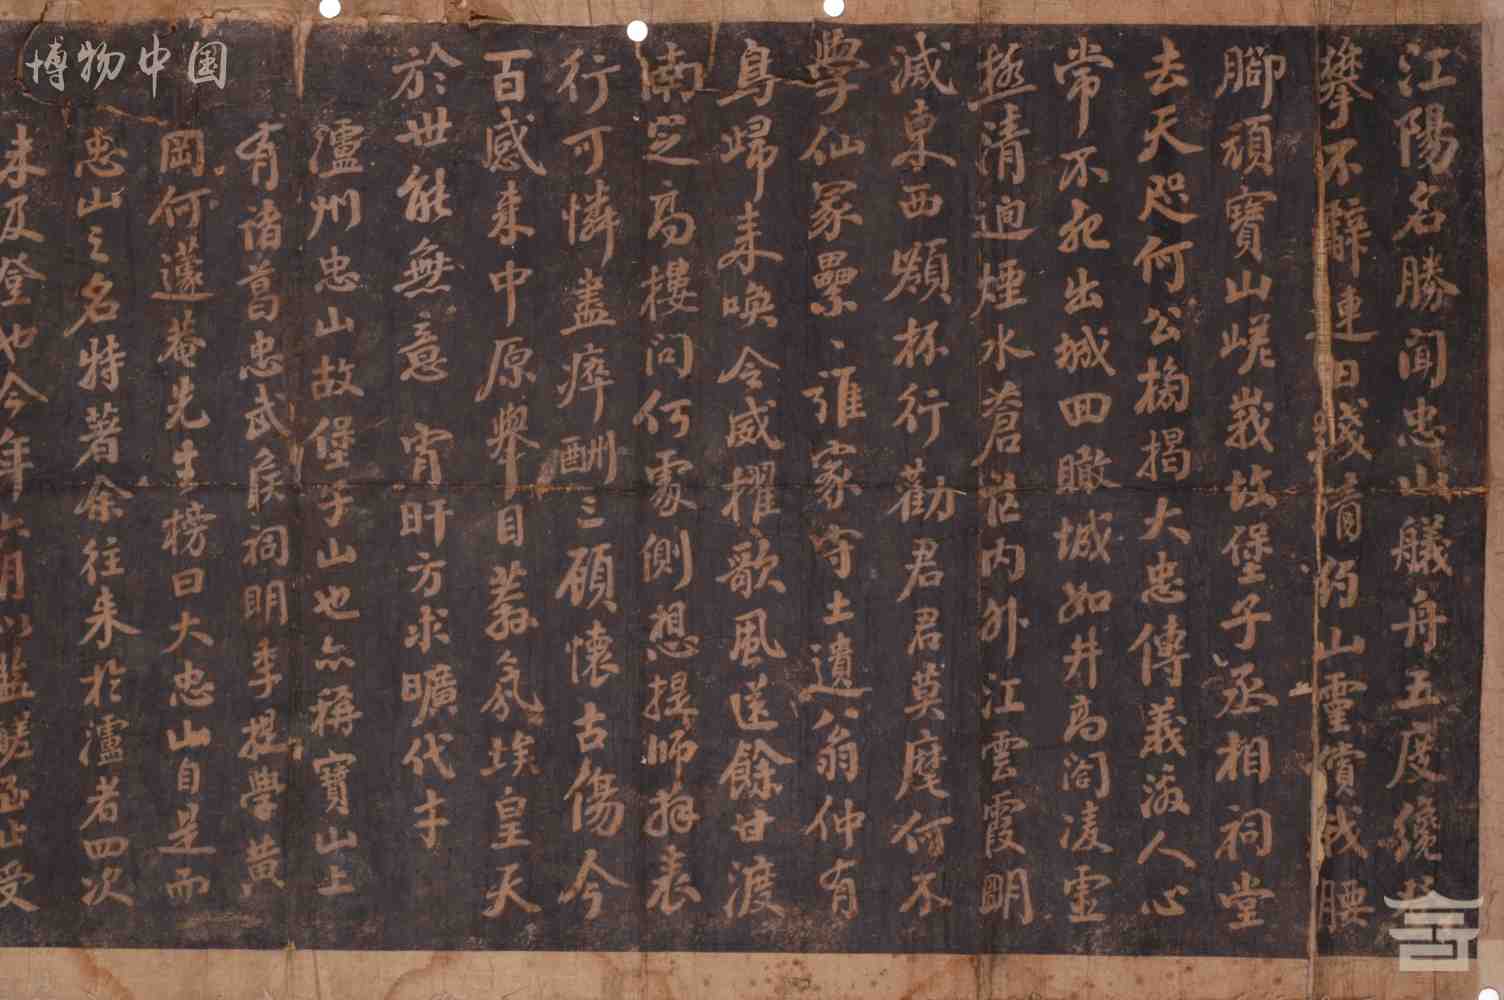 江陽名勝聞忠山艤舟五度纔
攀不辭連日殘膏約山靈賞我腰
腳頑寶山嵯峩故堡子丞相祠堂
去天咫何公搨揭大忠傳義激人心
常不死出城四瞰城如井高閣凌虛
極清迥煙水蒼茫内外江雲霞明
滅東西頻杯行勸君君莫麾何不
學仙冢壘壘〻誰家守土遺八翁仲有
鳥歸来喚令威擢歌風送餘甘渡
南定高樓問何處側想提師拜表
行可憐盡瘁酬三顧懷古傷今
百感来中原舉目蓊氛埃皇天
於世能無意宵旰方求曠代才
瀘州忠山故堡子山也亦稱寶山上
有諸葛忠武矦祠明季提學黄
岡何蘧菴先生榜曰大忠山自是而
忠山之名特著余往来於瀘者四次
未及登也今年六月以監鹺函止受
博物中国